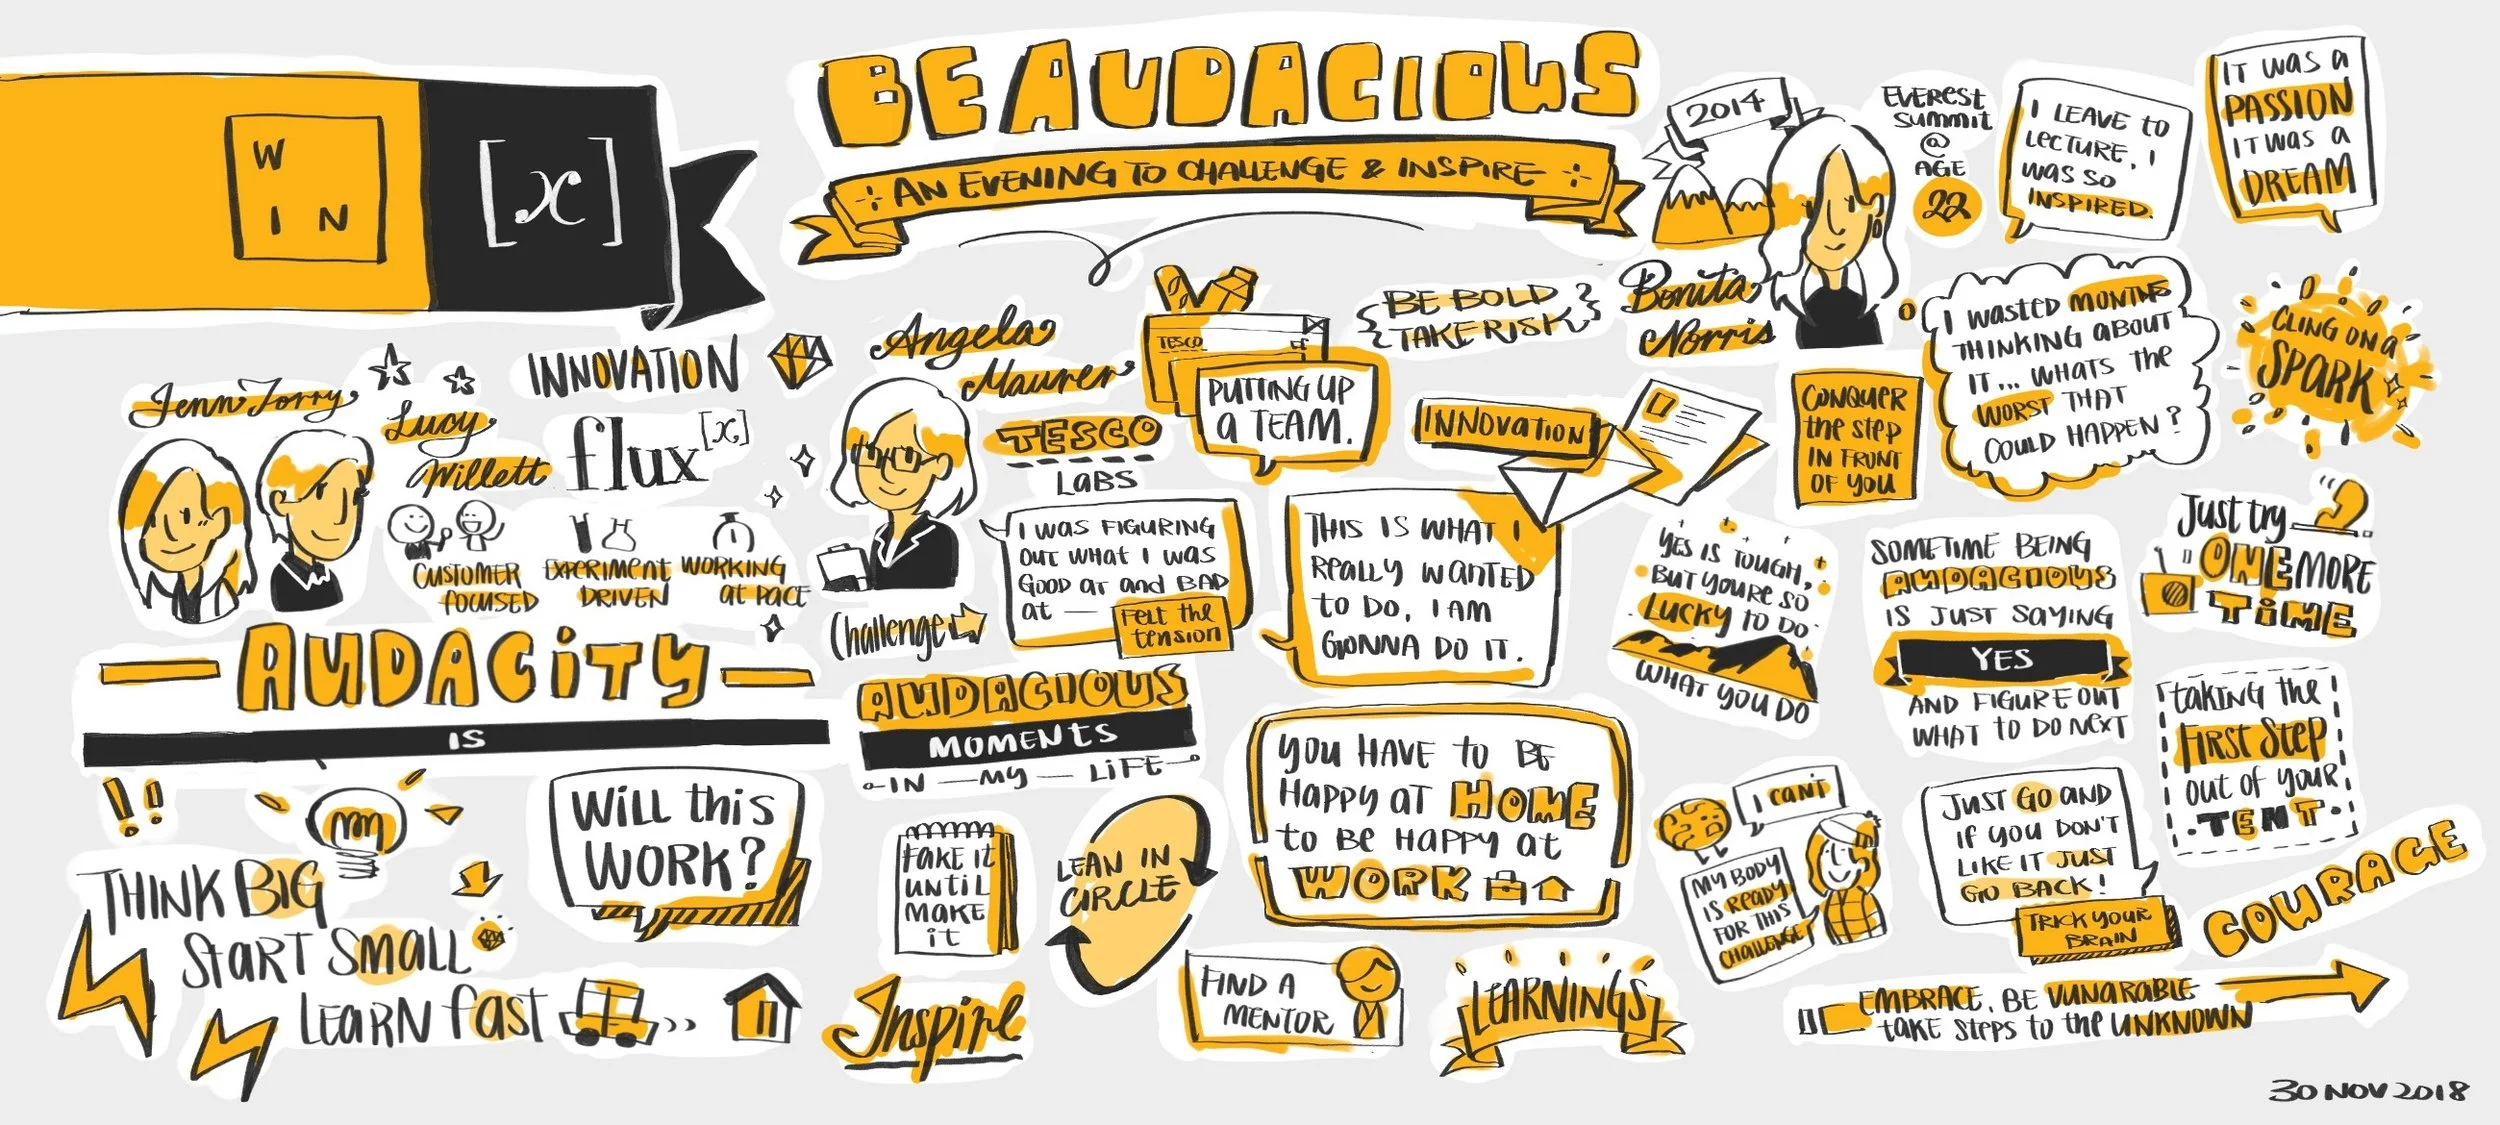 W
I N
[x]
BE AUDACIOUS
AN EVENING TO CHALLENGE & INSPIRE
Jenn Torry
Lucy
Willett
INNOVATION
flux[x]
CUSTOMER
focuSED
EXPERIMENT
DRIVEN
WORKING
at PACE
AUDACITY
IS
!!
THINK BIG
START SMALL
LEARN fast
Will this
WORK?
Angela
Maurer
TESCO
LaBS
TESCO
PUTTING UP
a TEAM.
BE BOLD
TAKE RISK
Challenge
I WAS FIGURING
OUT WHAT I WAS
GOOD AT and BAD
at —
FELT the
tension
INNOVATION
THIS IS WHAT I
REALLY WANTED
to DO, I AM
GONNA DO IT.
AUDACIOUS
MOMENtS
IN — MY — LiFE
FAKE It
UNTIL
MAKE
it
LEAN IN
CIRCLE
YOU HAVE to BE
HAPPY AT HOME
to BE HAPPY at
WORK
Inspire
FIND A
MENTOR
LEARNINGS
2014
Bonita
Norris
EVEREST
Summit
@
AGE
22
I LEAVE to
LECTURE. I
WAS SO
INSPIRED.
IT WAS a
PASSION
IT WAS a
DREAM
CONQUER
the step
IN FRONT
OF YOU
I WASTED MONTHS
THINKING aBOUT
IT... WHATS the
WORST THAT
COULD HAPPEN?
CLING ON a
SPARK
YES IS TOUGH,
BUT YOURE SO
LUCKY TO DO
WHAT YOU DO
SOMETIME BEING
AUDACIOUS
IS JUST SAYING
YES
AND FIGURE OUT
WHAT TO DO NEXT
Just try
ONE MORE
TiME
taking the
FIRST STEP
out of your
TENT
I CAN'T
MY BODY
IS READY
FOR THIS
CHALLENGE
JUST GO AND
IF YOU DON'T
LIKE IT JUST
GO BACK!
TRICK YOUR
BRAIN
COURAGE
EMBRACE. BE VUNARABLE
tAKE STEPS to the UNKNOWN
30 NOV 2018